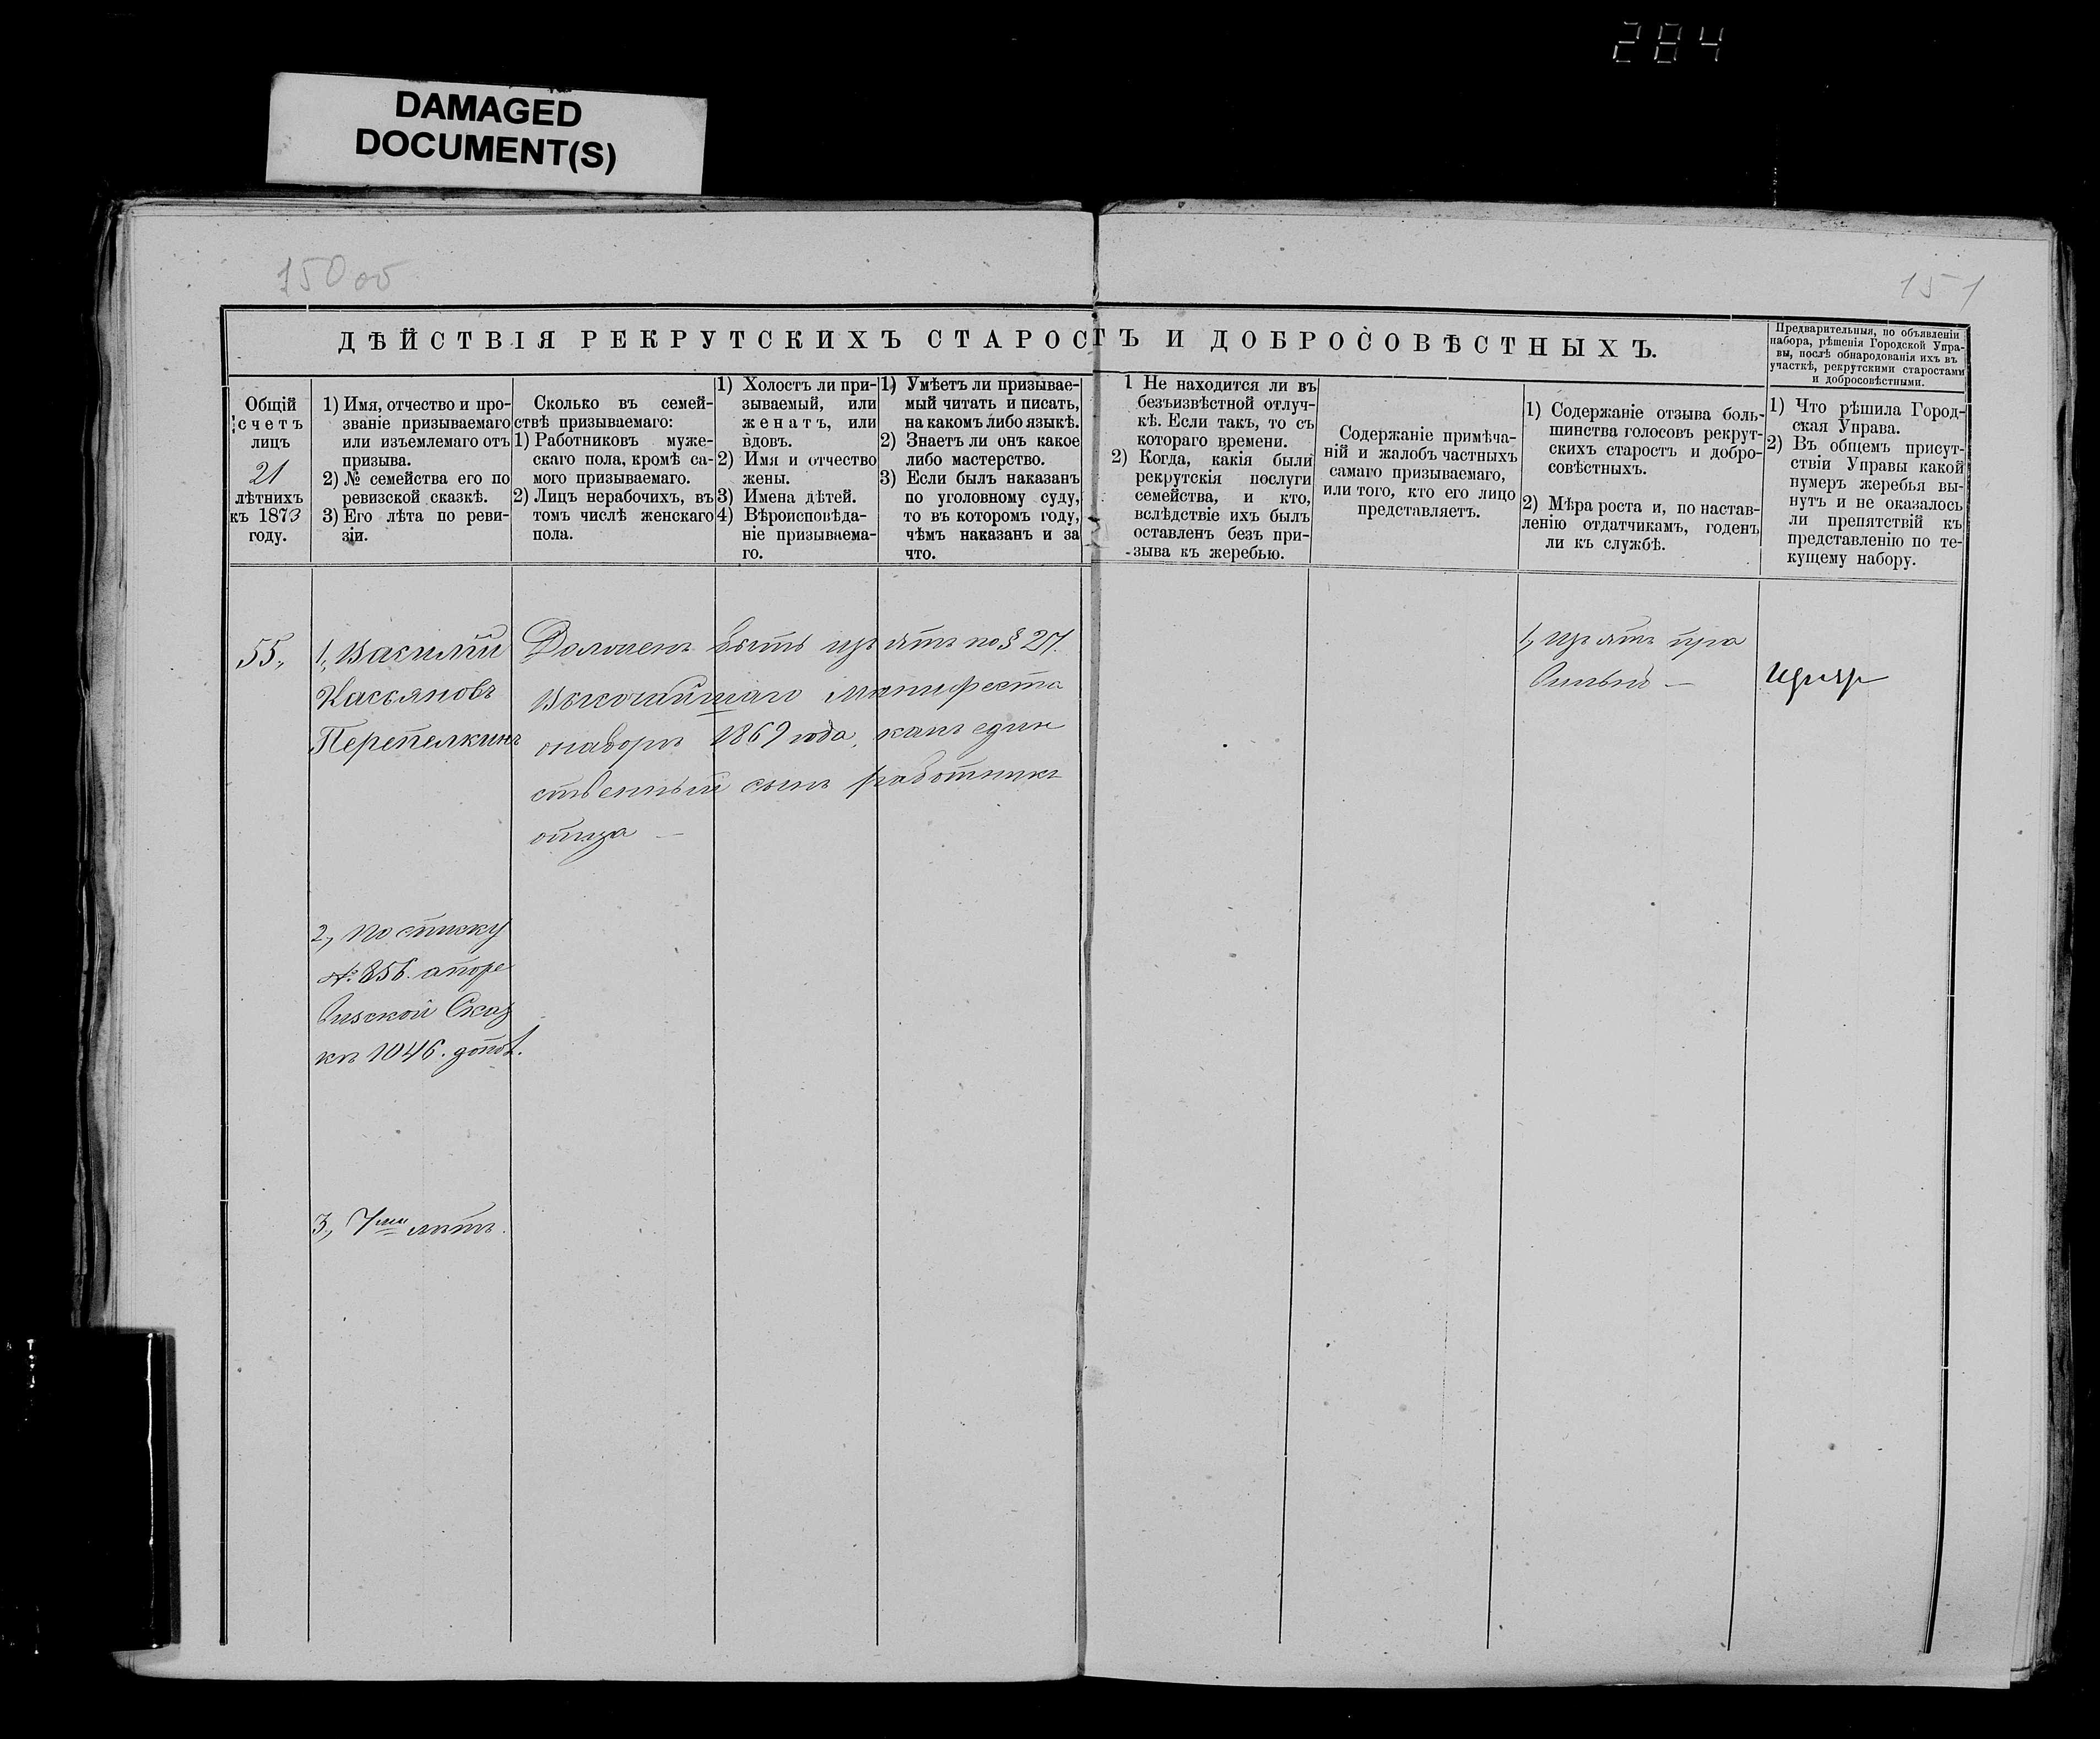 284
DAMAGED
DOCUMENT(S)
150 об
151
ДѢЙСТВІЯ РЕКРУТСКИХЪ СТАРОСТЪ И ДОБРОСОВѢСТНЫХЪ.
Предварительныя, по объявленіи
набора, рѣшенія Городской Упра-
вы, послѣ обнародованія ихъ въ
участкѣ, рекрутскими старостами
и добросовѣстными.
Общій
счетъ
лицъ
21
лѣтнихъ
къ 1873
году.
1) Имя, отчество и про-
званіе призываемаго
или изъемлемаго отъ
призыва.
2) № семейства его по
ревизской сказкѣ.
3) Его лѣта по реви-
зіи.
Сколько въ семей-
ствѣ призываемаго:
1) Работниковъ муже-
скаго пола, кромѣ са-
мого призываемаго.
2) Лицъ нерабочихъ, въ
томъ числѣ женскаго
пола.
1) Холостъ ли при-
зываемый, или
женатъ, или
вдовъ.
2) Имя и отчество
жены.
3) Имена дѣтей.
4) Вѣроисповѣда-
ніе призываема-
го.
1) Умѣетъ ли призывае-
мый читать и писать,
на какомъ либо языкѣ.
2) Знаетъ ли онъ какое
либо мастерство.
3) Если былъ наказанъ
по уголовному суду,
то въ которомъ году,
чѣмъ наказанъ и за
что.
1 Не находится ли въ
безъизвѣстной отлуч-
кѣ. Если такъ, то съ
котораго времени.
2) Когда, какія были
рекрутскія послуги
семейства, и кто,
вслѣдствіе ихъ былъ
оставленъ безъ при-
зыва къ жеребью.
Содержаніе примѣча-
ній и жалобъ частныхъ
самаго призываемаго,
или того, кто его лицо
представляетъ.
1) Содержаніе отзыва боль-
шинства голосовъ рекрут-
скихъ старостъ и добро-
совѣстныхъ.
2) Мѣра роста и, по настав-
ленію отдатчикамъ, годенъ
ли къ службѣ.
1) Что рѣшила Город-
ская Управа.
2) Въ общемъ присут-
ствіи Управы какой
нумеръ жеребья вы-
нутъ и не оказалось
ли препятствій къ
представленію по те-
кущему набору.
55,
1, Василій
Касьяновъ
Перепелкинъ
2, по списку
№ 856. а по ре
визской Сказ
кѣ 1046. допол.
3, 7ми лѣтъ.
Долженъ быть изъятъ по § 27.
Высочайшаго Манифеста
о наборѣ 1869 года, какъ един
ственный сынъ работникъ
отца —
1, изъятъ пра
вильно —